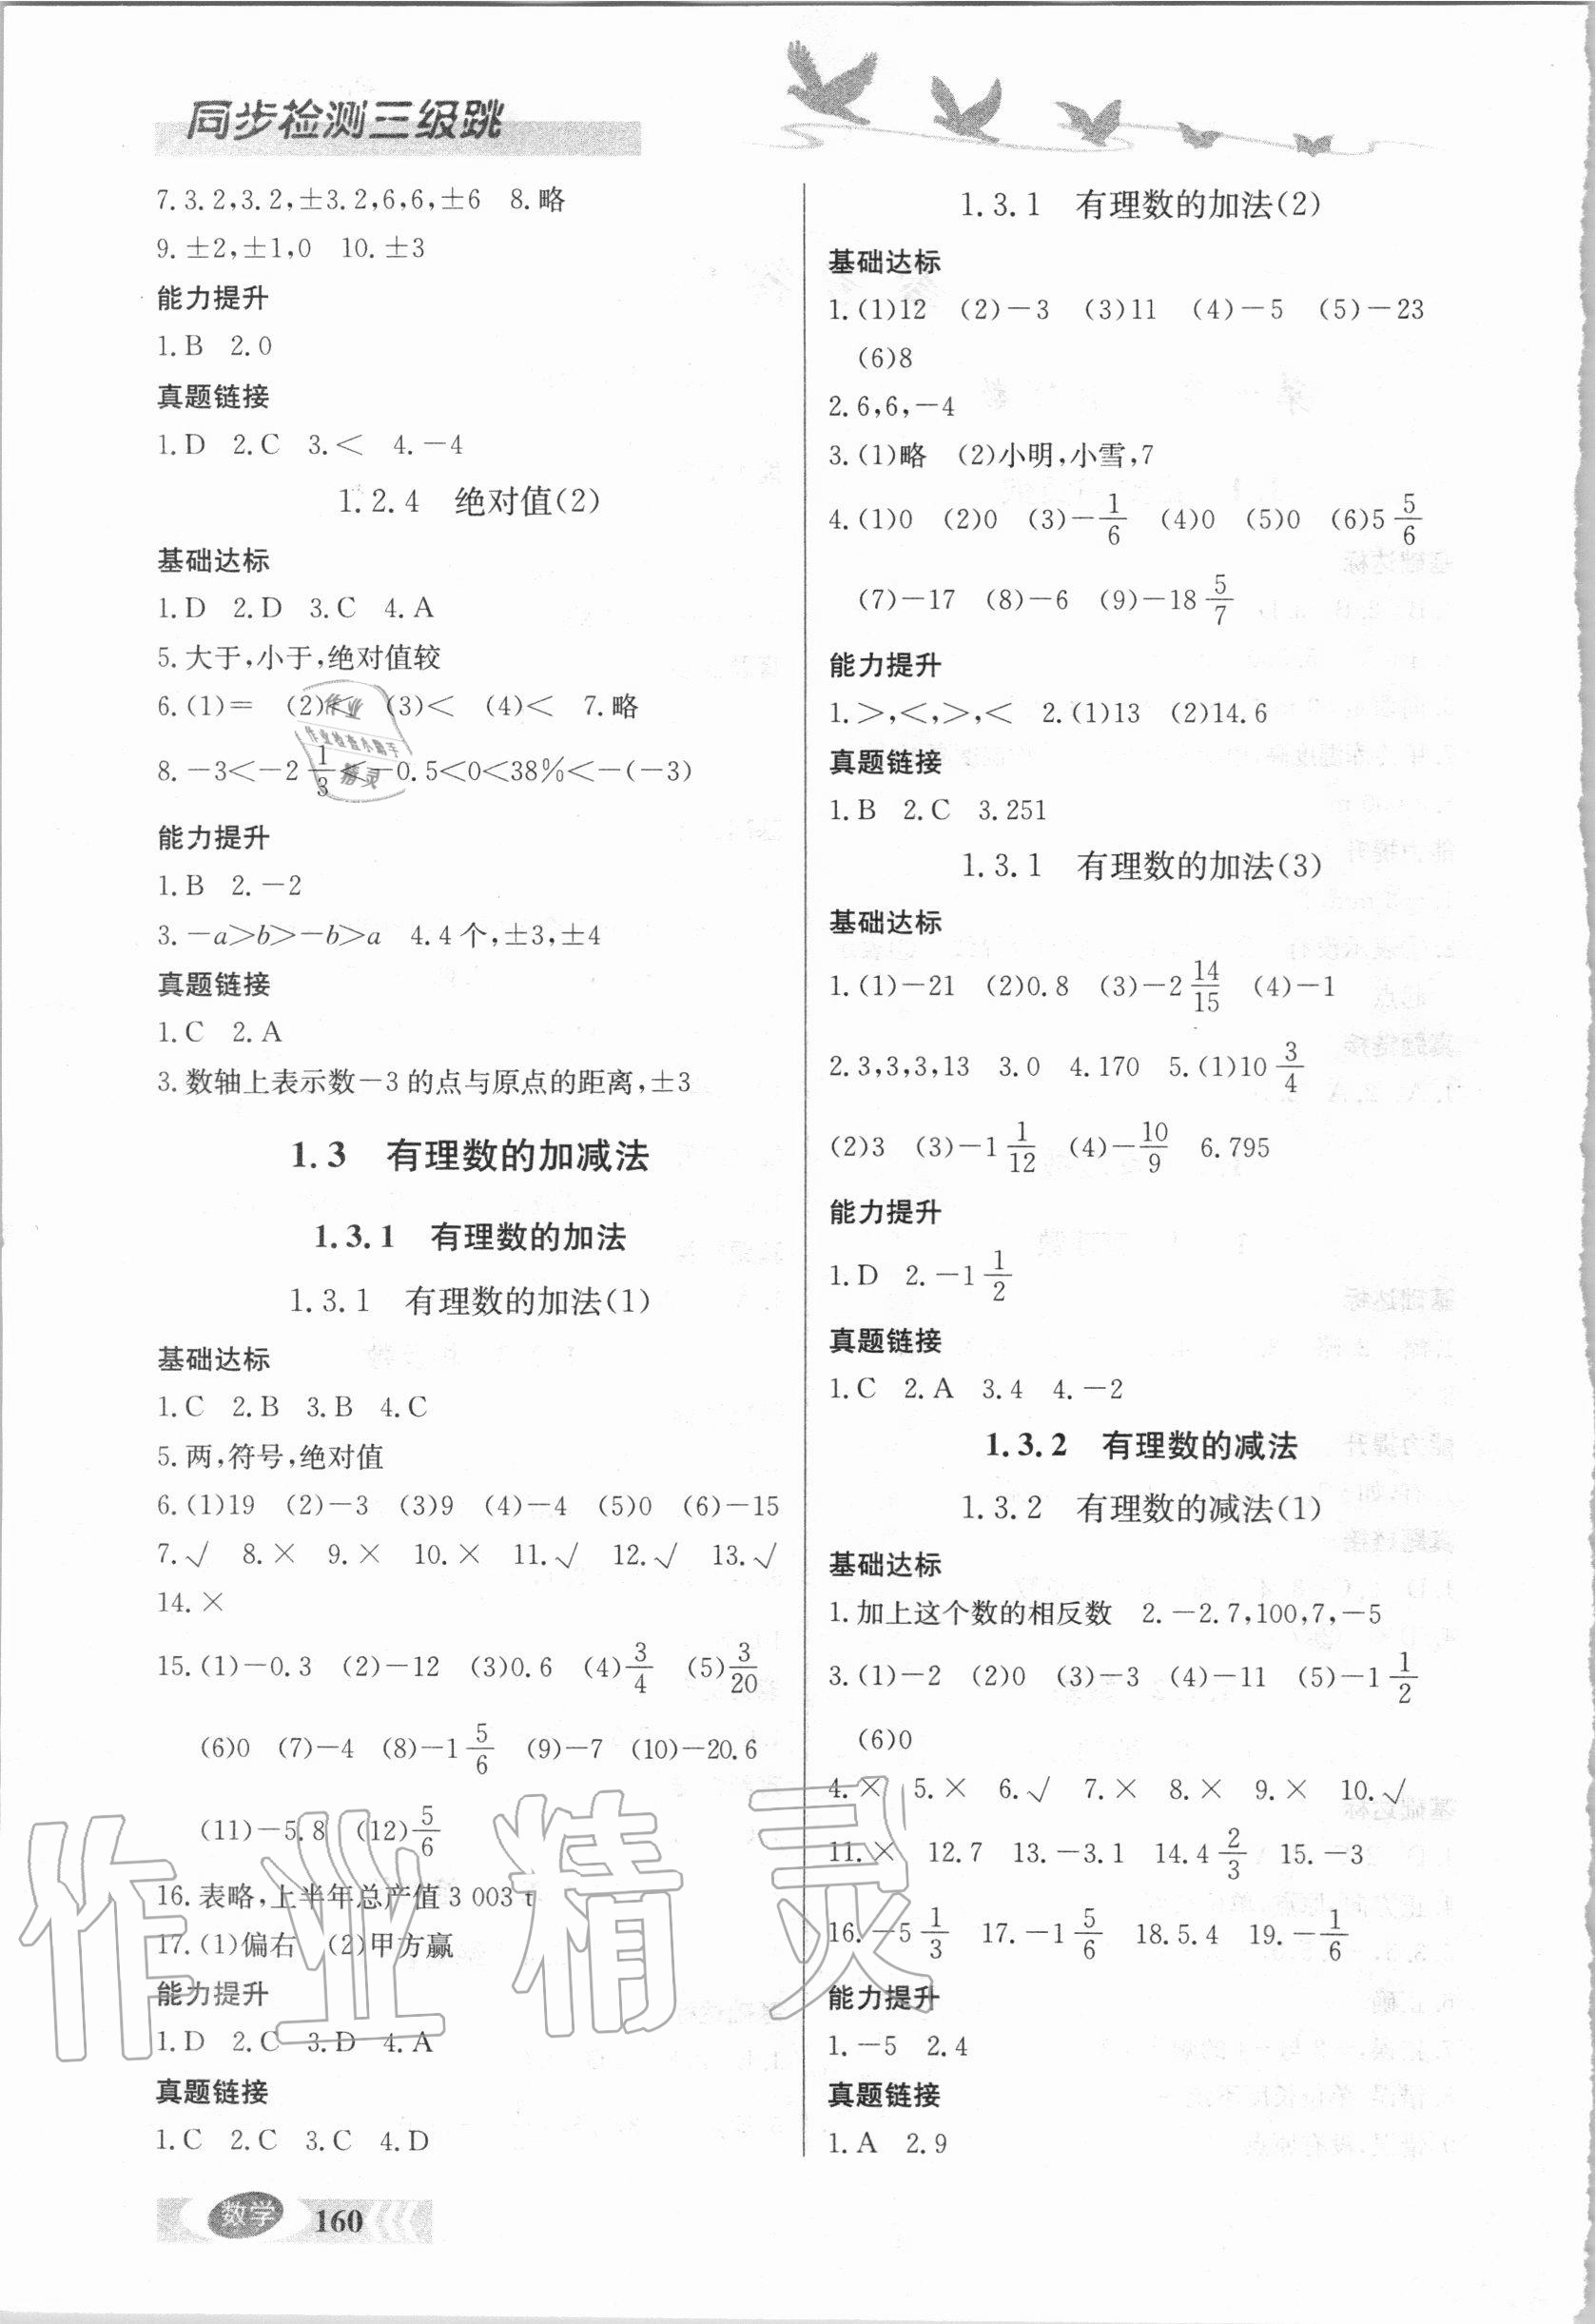 同步检测三级跳
7.3.2,3.2,±3.2,6,6,±6 8.略
9.±2,±1,0 10.±3
能力提升
1.B 2.0
真题链接
1.D 2.C 3.< 4.-4
1.2.4 绝对值(2)
基础达标
1.D 2.D 3.C 4.A
5.大于,小于,绝对值较
6.(1)= (2)< (3)< (4)< 7.略
8.-3<-2 1/3<-0.5<0<38%<-(-3)
能力提升
1.B 2.-2
3.-a>b>-b>a 4.4个,±3,±4
真题链接
1.C 2.A
3.数轴上表示数-3的点与原点的距离,±3
1.3 有理数的加减法
1.3.1 有理数的加法
1.3.1 有理数的加法(1)
基础达标
1.C 2.B 3.B 4.C
5.两,符号,绝对值
6.(1)19 (2)-3 (3)9 (4)-4 (5)0 (6)-15
7.√ 8.× 9.× 10.× 11.√ 12.√ 13.√
14.×
15.(1)-0.3 (2)-12 (3)0.6 (4)3/4 (5)3/20
(6)0 (7)-4 (8)-1 5/6 (9)-7 (10)-20.6
(11)-5.8 (12)5/6
16.表略,上半年总产值3 003 t
17.(1)偏右 (2)甲方赢
能力提升
1.D 2.C 3.D 4.A
真题链接
1.C 2.C 3.C 4.D
数学 160
1.3.1 有理数的加法(2)
基础达标
1.(1)12 (2)-3 (3)11 (4)-5 (5)-23
(6)8
2.6,6,-4
3.(1)略 (2)小明,小雪,7
4.(1)0 (2)0 (3)-1/6 (4)0 (5)0 (6)5 5/6
(7)-17 (8)-6 (9)-18 5/7
能力提升
1.>,<,>,< 2.(1)13 (2)14.6
真题链接
1.B 2.C 3.251
1.3.1 有理数的加法(3)
基础达标
1.(1)-21 (2)0.8 (3)-2 14/15 (4)-1
2.3,3,3,13 3.0 4.170 5.(1)10 3/4
(2)3 (3)-1 1/12 (4)-10/9 6.795
能力提升
1.D 2.-1 1/2
真题链接
1.C 2.A 3.4 4.-2
1.3.2 有理数的减法
1.3.2 有理数的减法(1)
基础达标
1.加上这个数的相反数 2.-2.7,100,7,-5
3.(1)-2 (2)0 (3)-3 (4)-11 (5)-1 1/2
(6)0
4.× 5.× 6.√ 7.× 8.× 9.× 10.√
11.× 12.7 13.-3.1 14.4 2/3 15.-3
16.-5 1/3 17.-1 5/6 18.5.4 19.-1/6
能力提升
1.-5 2.4
真题链接
1.A 2.9
作业
作业检查小助手
精灵
作业精灵